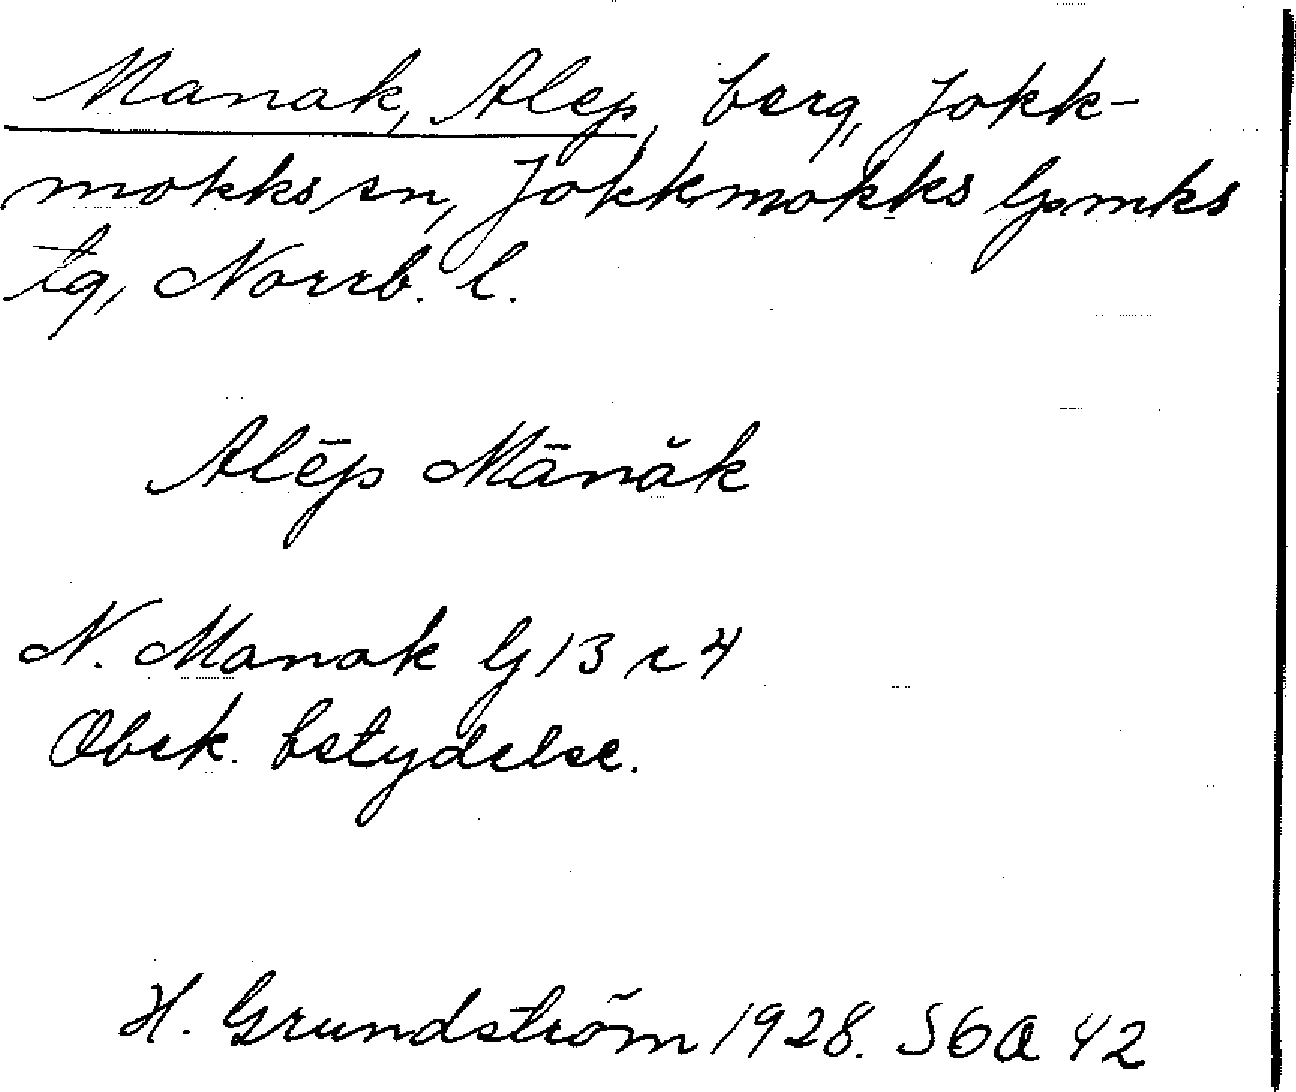 Manak, Alep, berg, Jokk-
mokks sn, Jokkmokks lpmks
tg, Norrb. l.
Alēp Mānăk
N. Manak G 13 c 4
Obek. betydelse.
H. Grundström 1928. SOA 42